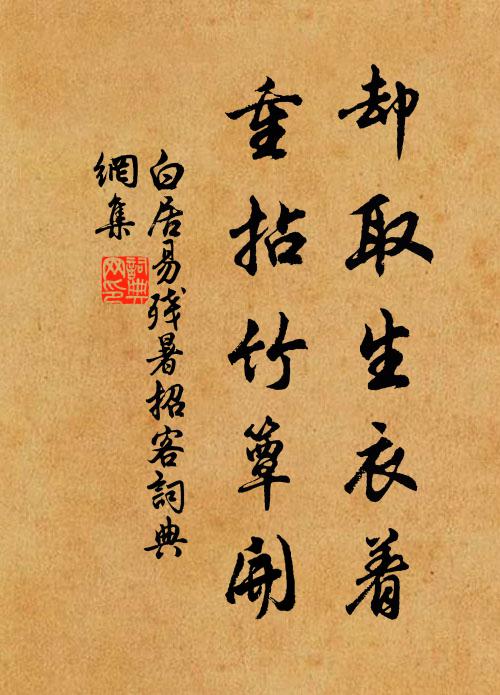 却取生衣着
重拈竹簟開
白居易残暑招客詞典
網集
詞典
网印